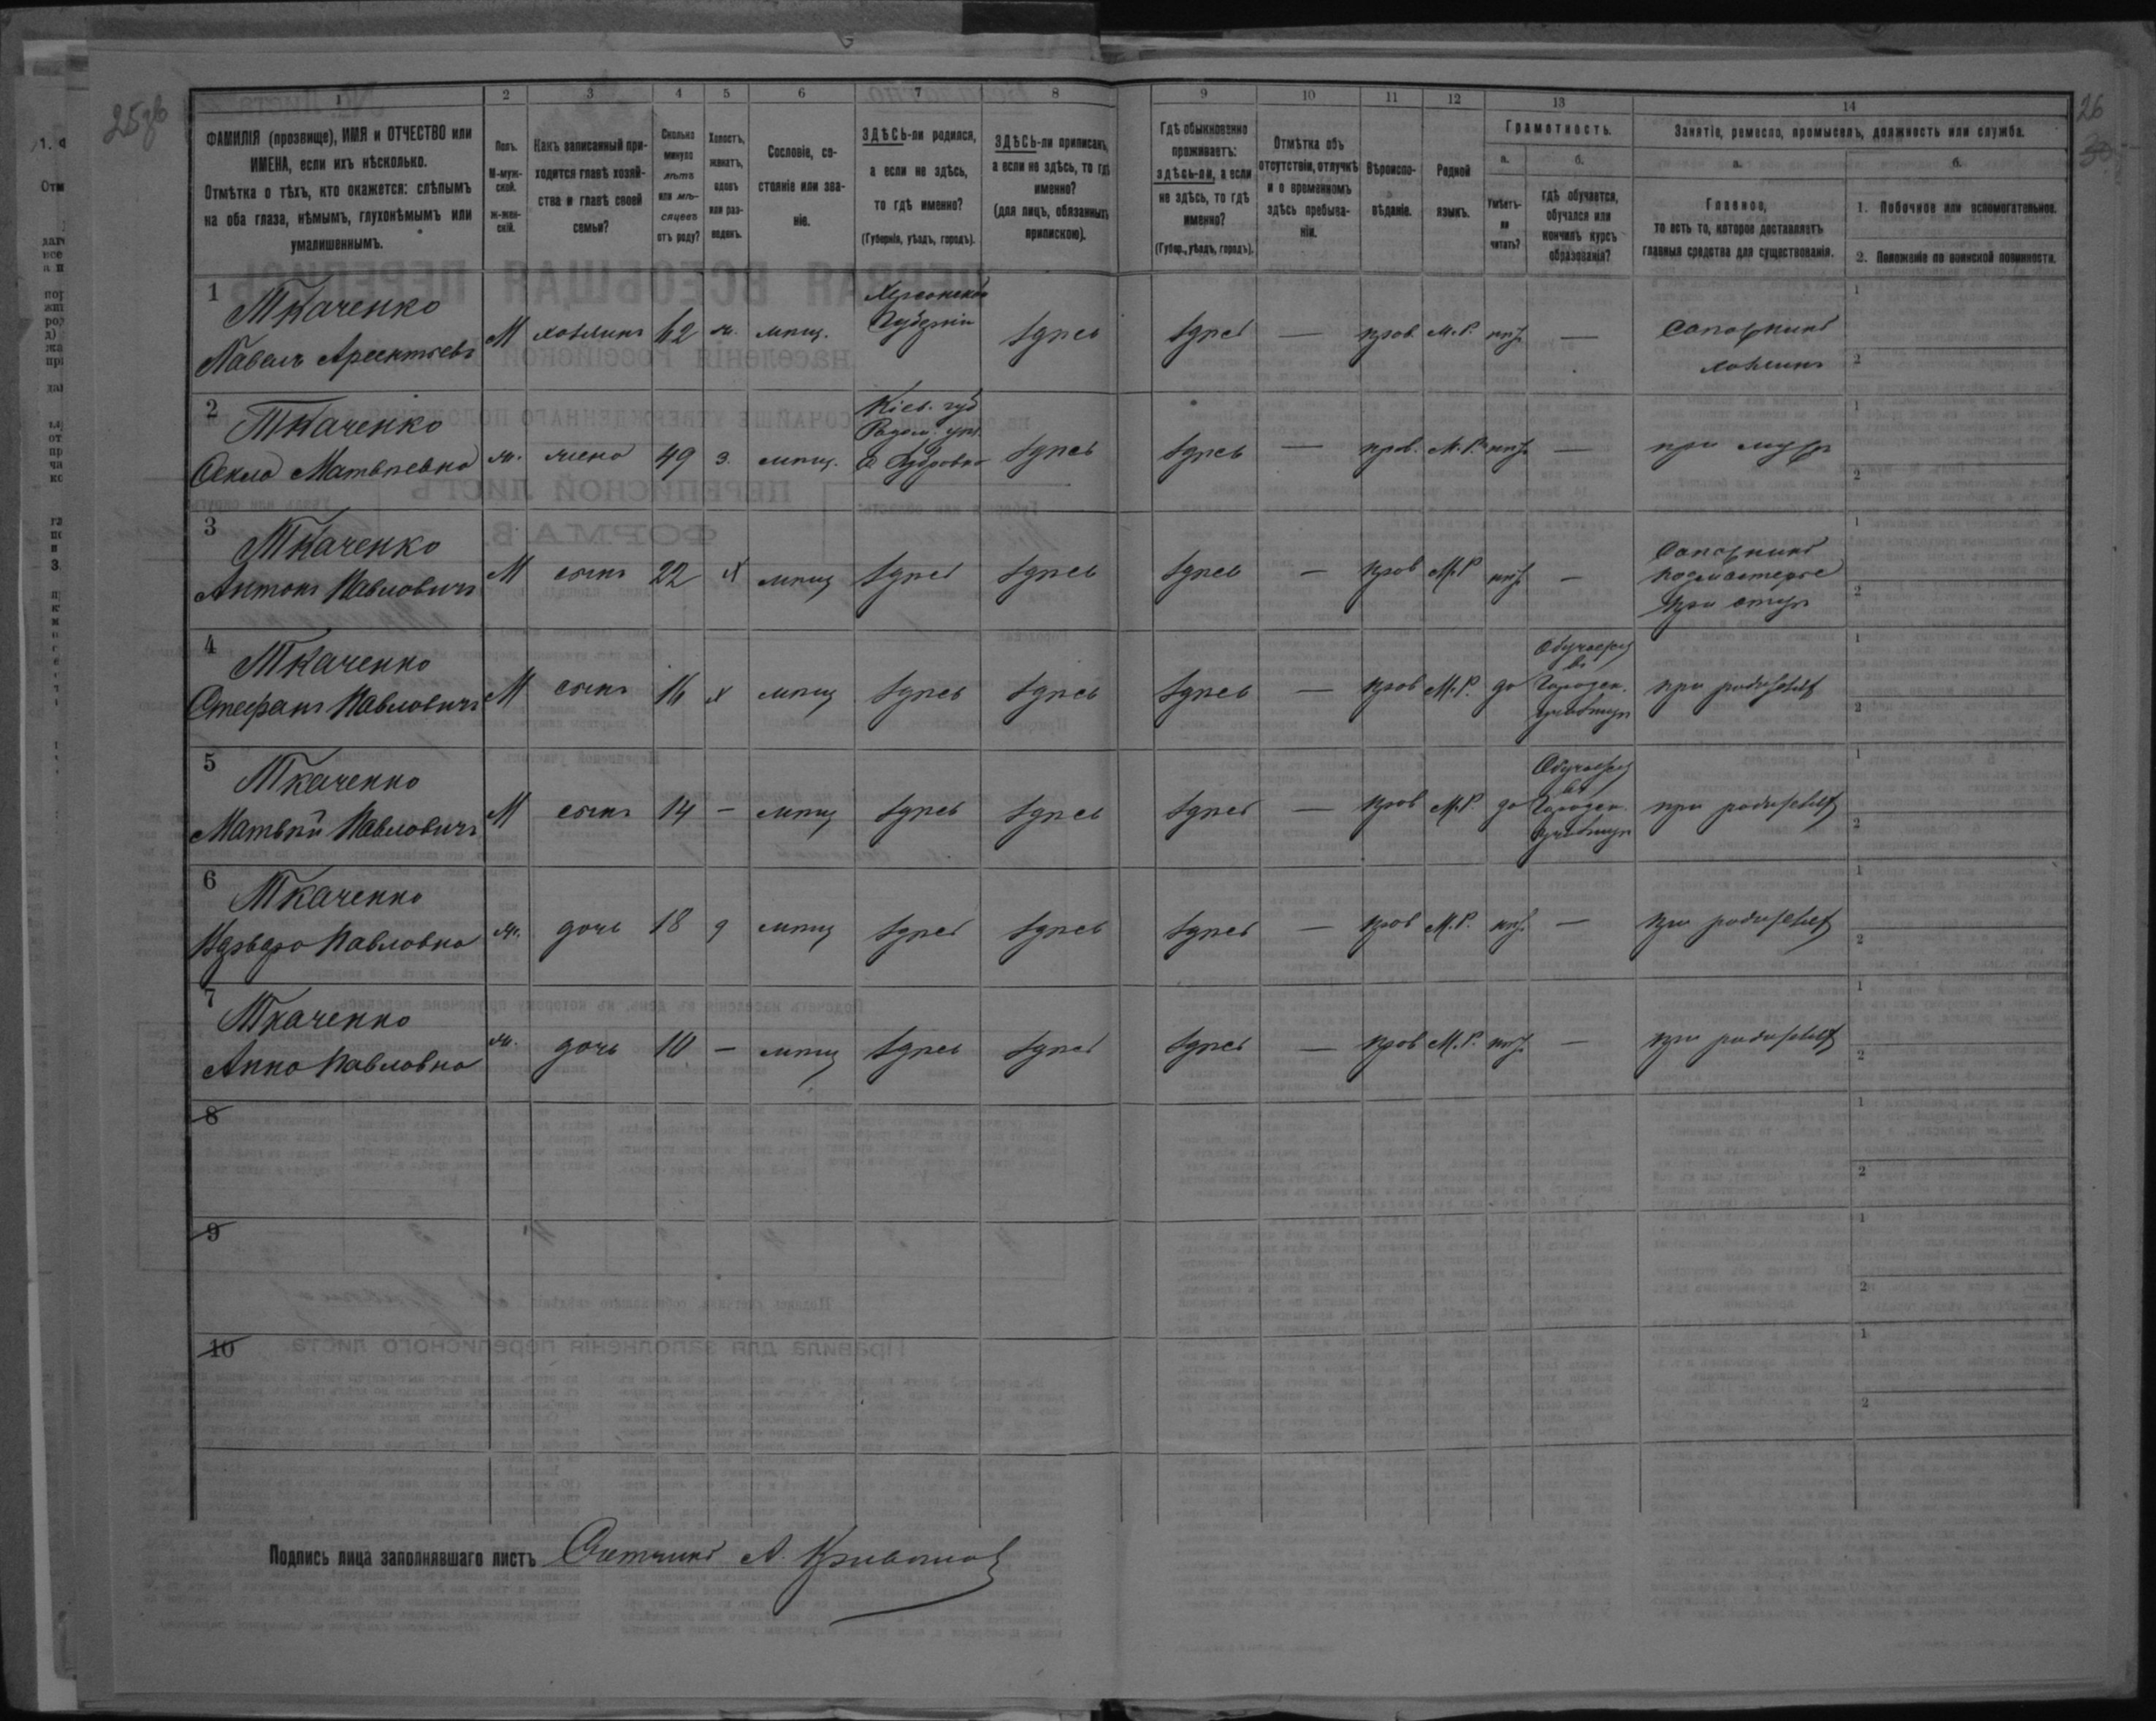 25об
26
30
1 2 3 4 5 6 7 8 9 10 11 12 13 14
ФАМИЛІЯ (прозвище), ИМЯ и ОТЧЕСТВО или
ИМЕНА, если ихъ нѣсколько.
Отмѣтка о тѣхъ, кто окажется: слѣпымъ
на оба глаза, нѣмымъ, глухонѣмымъ или
умалишеннымъ.
Полъ.
М-муж-
ской.
ж-жен-
скій.
Какъ записанный при-
ходится главѣ хозяй-
ства и главѣ своей
семьи?
Сколько
минуло
лѣтъ
или мѣ-
сяцевъ
отъ роду?
Холостъ,
женатъ,
вдовъ
или раз-
веденъ.
Сословіе, со-
стояніе или зва-
ніе.
ЗДѢСЬ-ли родился,
а если не здѣсь,
то гдѣ именно?
(Губернія, уѣздъ, городъ).
ЗДѢСЬ-ли приписанъ,
а если не здѣсь, то гдѣ
именно?
(для лицъ, обязанныхъ
припискою).
Гдѣ обыкновенно
проживаетъ:
здѣсь-ли, а если
не здѣсь, то гдѣ
именно?
(Губер., уѣздъ, городъ).
Отмѣтка объ
отсутствіи, отлучкѣ
и о временномъ
здѣсь пребыва-
ніи.
Вѣроиспо-
вѣданіе.
Родной
языкъ.
Грамотность.
а.
Умѣетъ-
ли
читать?
б.
гдѣ обучается,
обучался или
кончилъ курсъ
образованія?
Занятіе, ремесло, промыселъ, должность или служба.
а.
Главное,
то есть то, которое доставляетъ
главныя средства для существованія.
б.
1. Побочное или вспомогательное.
2. Положеніе по воинской повинности.
1
Ткаченко
Павелъ Арсентьевъ
М хозяинъ 62 ж. мѣщ.
Херсонской
Губерніи
здѣсь здѣсь — прав. М.Р. нѣт —
Сапожникъ
хозяинъ
2
Ткаченко
Фекла Матвѣевна
ж. жена 49 з. мѣщ.
Кіев. губ
Радом. уѣз.
здѣсь здѣсь — прав. М.Р. нѣт —
при мужѣ
3
Ткаченко
Антонъ Павловичъ
М сынъ 22 х мѣщ здѣсь здѣсь здѣсь — прав М.Р нѣт —
Сапожникъ
подмастерье
при отцѣ
4
Ткаченко
Стефанъ Павловичъ
М сынъ 16 х мѣщ здѣсь здѣсь здѣсь — прав М.Р. да
Обучается
въ
Городск.
училищѣ
при родителѣ
5
Ткаченко
Матвѣй Павловичъ
М сынъ 14 — мѣщ здѣсь здѣсь здѣсь — прав М.Р. да
Обучается
въ
Городск.
училищѣ
при родителѣ
6
Ткаченко
Павловна
ж. дочь 18 д мѣщ здѣсь здѣсь здѣсь — прав М.Р. нѣт —
при родителѣ
7
Ткаченко
Анна Павловна
ж. дочь 10 — мѣщ здѣсь здѣсь здѣсь — прав М.Р. нѣт —
при родителѣ
8
9
10
Подпись лица заполнявшаго листъ Счетчикъ А.